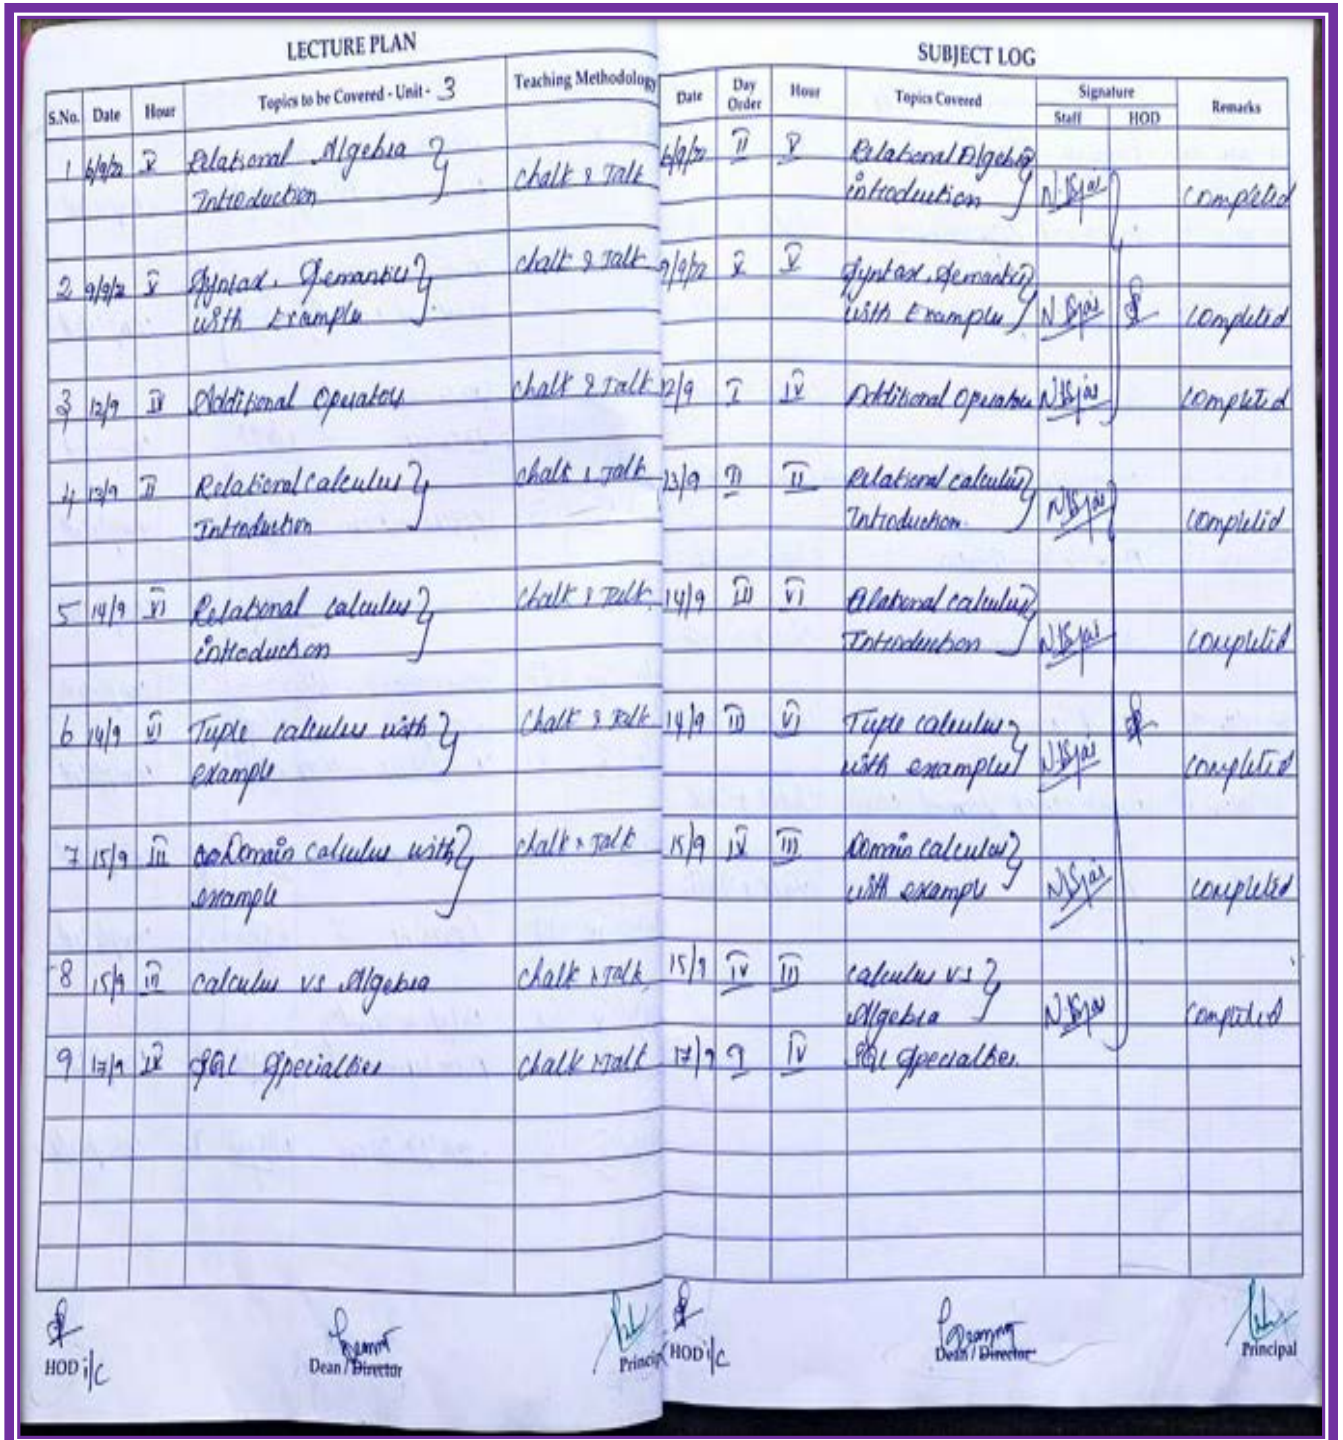 LECTURE PLAN
S.No. Date Hour Topics to be Covered - Unit - 3 Teaching Methodology
1 6/9/22 V Relational Algebra Introduction chalk & Talk
2 9/9/22 V Syntax, Semantics with Example chalk & Talk
3 12/9 IV Additional Operators chalk & Talk
4 13/9 II Relational calculus Introduction chalk & Talk
5 14/9 VI Relational calculus introduction chalk & Talk
6 14/9 VI Tuple calculus with example chalk & Talk
7 15/9 III Domain calculus with example chalk & Talk
8 15/9 III calculus vs Algebra chalk & Talk
9 17/9 IV SQL Specialties chalk & Talk
HOD i/c Dean / Director
SUBJECT LOG
Date Day Order Hour Topics Covered Signature Staff HOD Remarks
6/9/22 II V Relational Algebra introduction completed
9/9/22 V V Syntax, Semantics with Example completed
12/9 I IV Additional Operators completed
13/9 II II Relational calculus Introduction completed
14/9 III VI Relational calculus Introduction completed
14/9 III VI Tuple calculus with example completed
15/9 IV III Domain calculus with example completed
15/9 IV III calculus vs Algebra completed
17/9 IV SQL Specialties
HOD i/c Dean / Director Principal